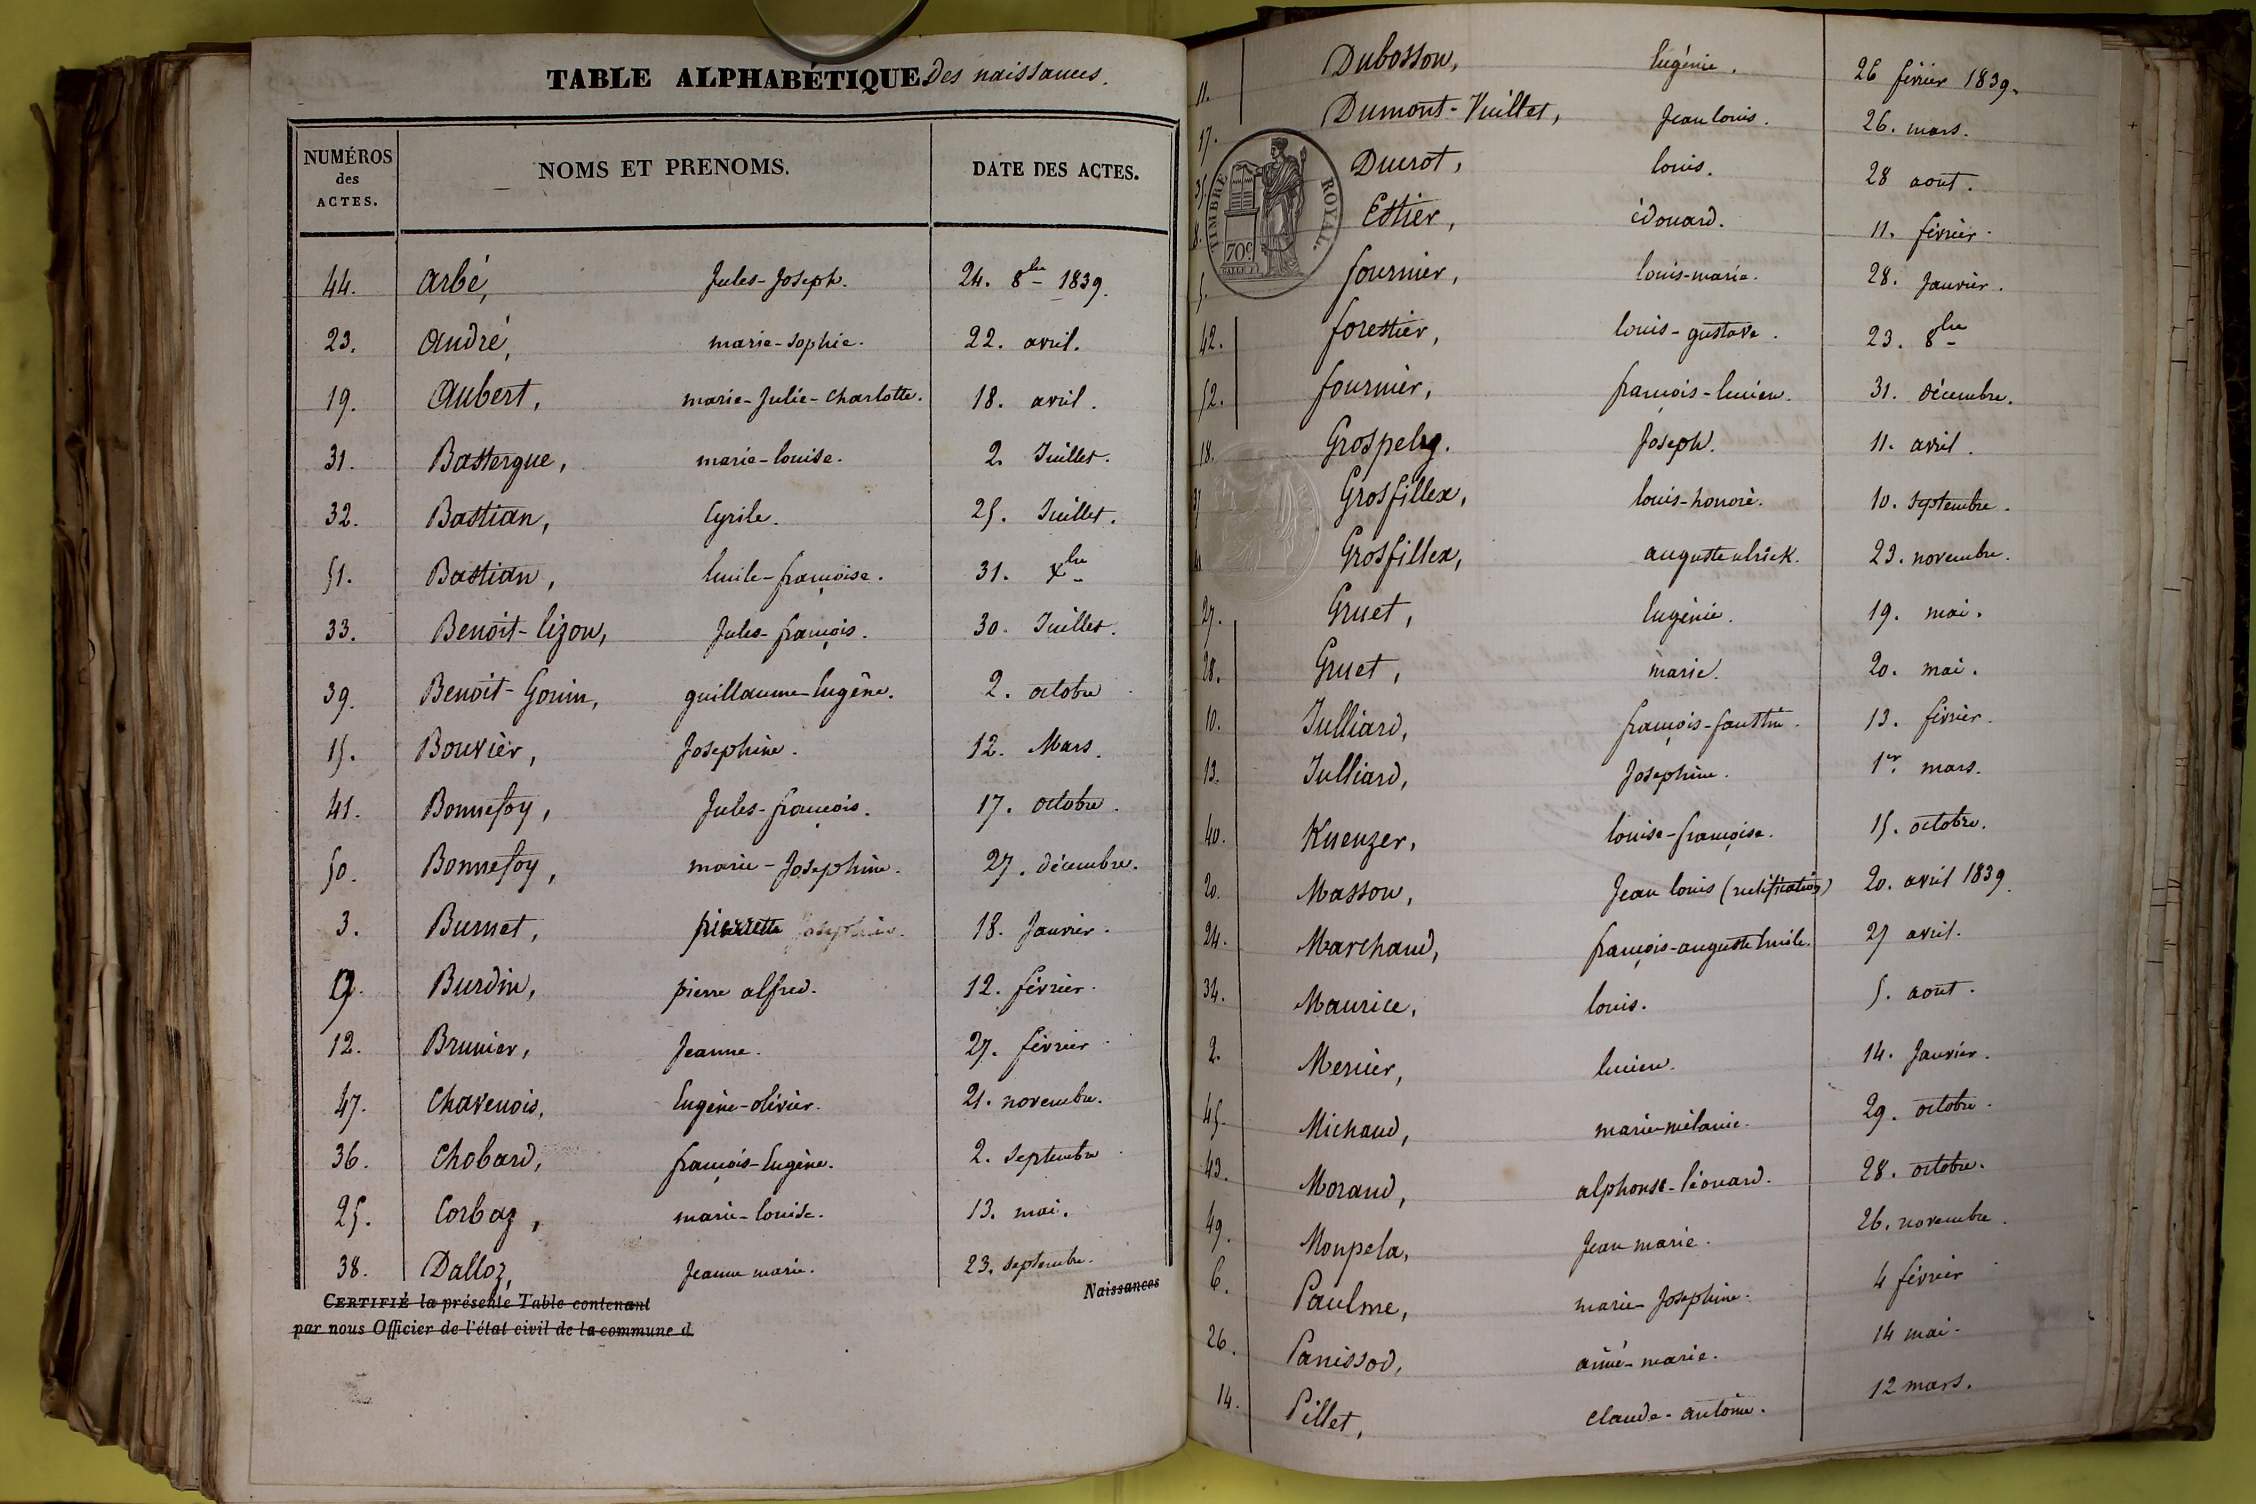 TABLE ALPHABÉTIQUE Des naissances.
NUMÉROS des ACTES. NOMS ET PRENOMS. DATE DES ACTES.
44. Arbé, Jules-Joseph. 24. 8bre 1839.
23. André, marie-Sophie. 22. avril.
19. Aubert, marie-Julie-Charlotte. 18. avril.
31. Bastergue, marie-louise. 2. Juillet.
32. Bastian, Cyrile. 25. Juillet.
51. Bastian, Emile-françoise. 31. Xbre
33. Benoit-Lizon, Jules-françois. 30. Juillet.
39. Benoit-Gonin, guillaume-Eugène. 2. octobre
15. Bouvier, Josephine. 12. Mars.
41. Bonnefoy, Jules-françois. 17. octobre.
50. Bonnefoy, marie-Josephine. 27. décembre.
3. Burnet, pierrette Josephine. 18. Janvier.
9. Burdin, pierre alfred. 12. février.
12. Brunier, Jeanne. 27. février.
47. Chavenois, Eugène-olivier. 21. novembre.
36. Chobard, françois-Eugène. 2. Septembre
25. Corbaz, marie-louise. 13. mai.
38. Dalloz, Jeanne marie. 23. septembre.
CERTIFIÉ la présente Table contenant Naissances
par nous Officier de l'état civil de la commune d
11. Dubosson, Eugénie. 26 février 1839.
17. Dumont-Vuillet, Jean louis. 26. mars.
35 Ducrot, louis. 28 aout.
8. Estier, édouard. 11. février.
5. fournier, louis-marie. 28. Janvier.
TIMBRE ROYAL.
70c
42. forestier, louis-gustave. 23. 8bre
52. fournier, françois-lucien. 31. décembre.
18. Grospely. Joseph. 11. avril.
37 Grosfillex, louis-honoré. 10. septembre.
Grosfillex, auguste ulrick. 23. novembre.
27. Gruet, Eugénie. 19. mai.
28. Gruet, marie. 20. mai.
10. Julliard, françois-faustin. 13. février.
13. Julliard, Josephine. 1er mars.
40. Kuenzer, louise-françoise. 15. octobre.
20. Masson, Jean louis (rectification) 20. avril 1839.
24. Marchand, françois-auguste Emile. 27 avril.
34. Maurice, louis. 5. aout.
2. Mercier, lucien. 14. Janvier.
45. Michaud, marie-mélanie. 29. octobre.
43. Morand, alphonse-léonard. 28. octobre.
49. Monpela, Jean marie. 26. novembre.
6. Paulme, marie-Josephine. 4 février
26. Panissod, aimé-marie. 14 mai.
14. Pillet, claude-antoine. 12 mars.